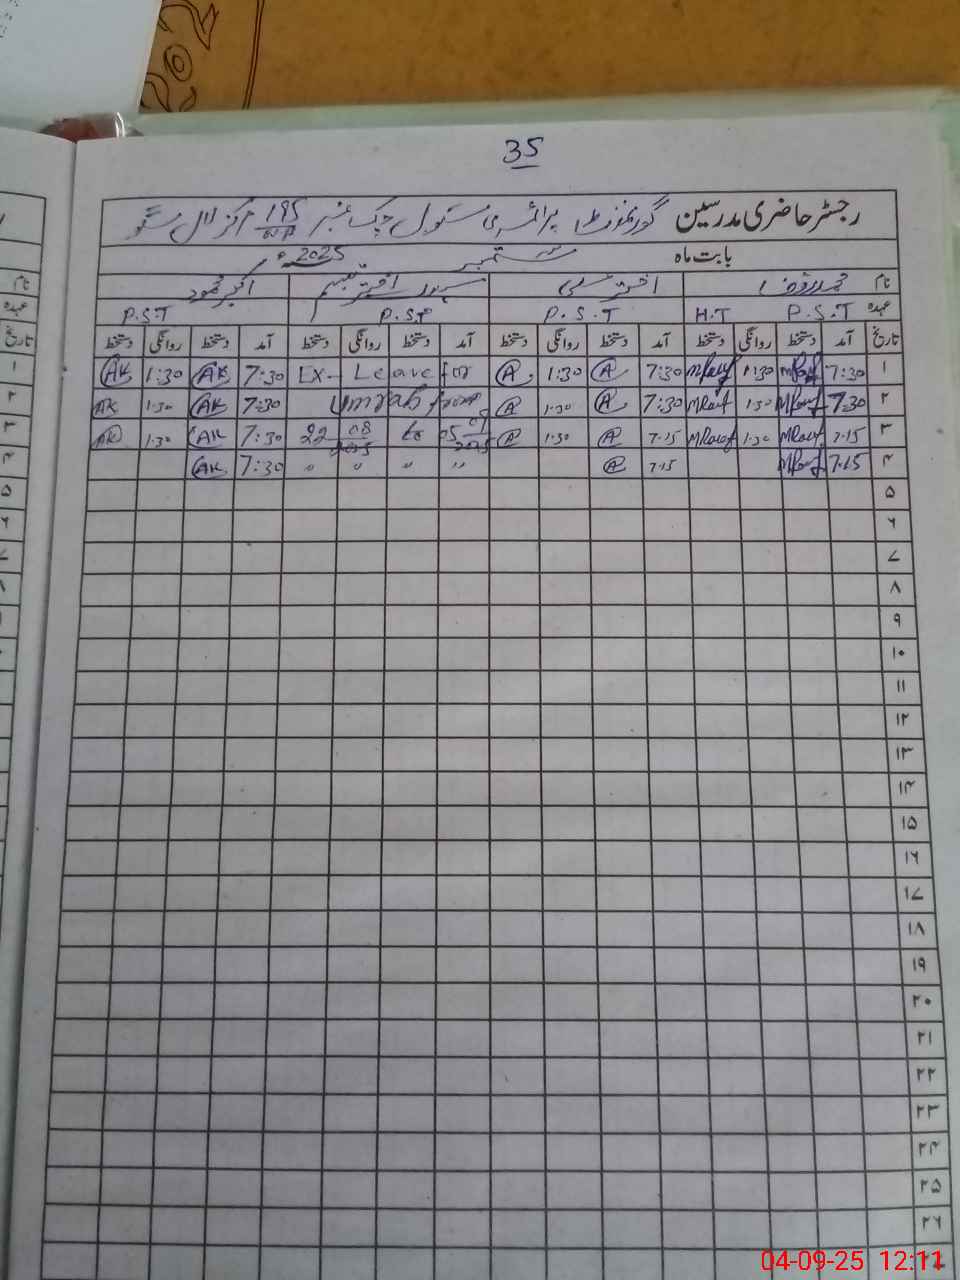 35
رجسٹر حاضری مدرسین گورنمنٹ پرائمری سکول چک نمبر 195
بابت ماہ ستمبر 2025ء
نام محمد رؤف اختر علی اختر تبسم اکبر محمود
عہدہ P.S.T H.T P.S.T P.S.T P.S.T
تاریخ آمد دستخط روانگی دستخط آمد دستخط روانگی دستخط آمد دستخط روانگی دستخط آمد دستخط روانگی دستخط
۱ 7:30 MRauf 1:30 MRauf 7:30 A 1:30 A Ex- Leave for 7:30 AK 1:30 AK
۲ 7:30 MRauf 1:30 MRauf 7:30 A 1:30 A Umrah from 7:30 AK 1:30 AK
۳ 7.15 MRauf 1:30 MRauf 7.15 A 1:30 A 22 08 2025 to 05 09 2025 7:30 AK 1:30 AK
۴ 7.15 MRauf 7.15 A " " " " 7:30 AK
۵
۶
۷
۸
۹
۱۰
۱۱
۱۲
۱۳
۱۴
۱۵
۱۶
۱۷
۱۸
۱۹
۲۰
۲۱
۲۲
۲۳
۲۴
۲۵
۲۶
04-09-25 12:11